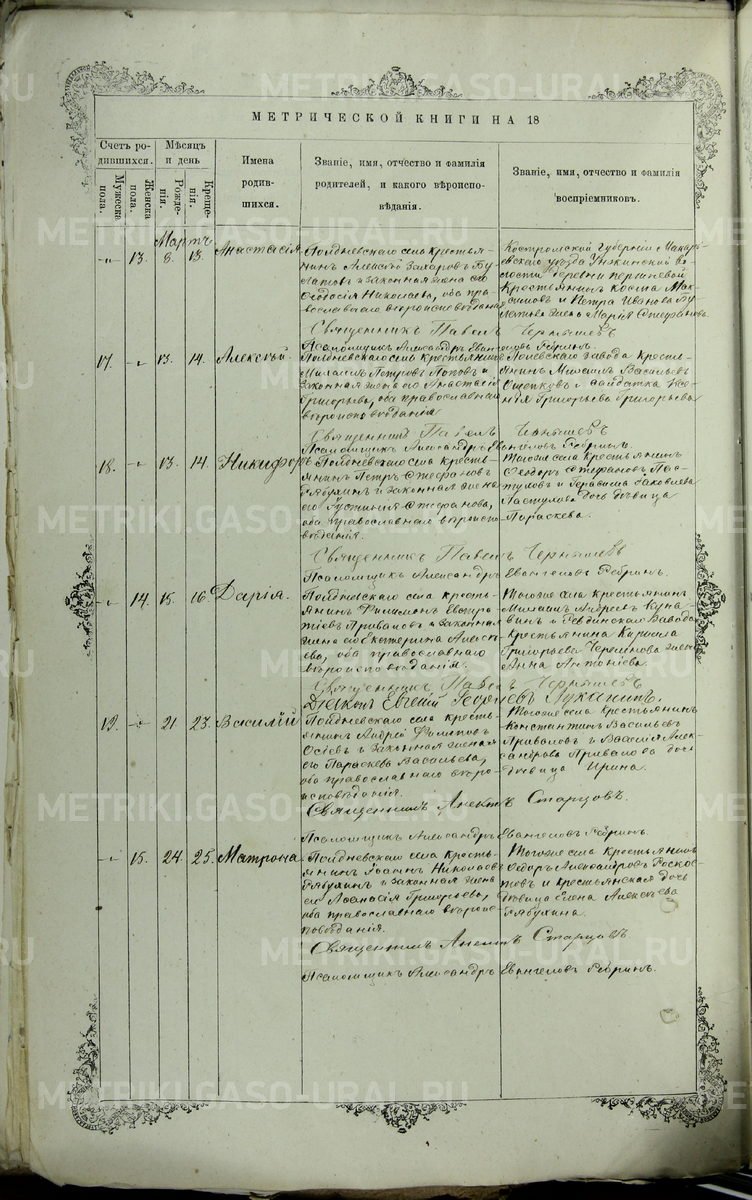 МЕТРИЧЕСКОЙ КНИГИ НА 18
Счетъ родившихся.
Мужеска пола.
Женска пола.
Мѣсяцъ и день
Рожденія.
Крещенія.
Имена родившихся.
Званіе, имя, отчество и фамилія родителей, и какого вѣроисповѣданія.
Званіе, имя, отчество и фамилія воспріемниковъ.
Мартъ
13. 8. 13. Анастасія
Полдневскаго села крестья-
нинъ Алексѣй Захаровъ Бу-
латовъ и законная жена его
Ѳеодосія Николаева, оба пра-
вославнаго вѣроисповѣданія
Костромской губерніи Макарь-
евскаго уѣзда Унжинской во-
лости деревни
крестьянинъ Косма Мак-
симовъ и Петра Иванова Бу-
латова жена Марія Стефанова.
Священникъ Павелъ Чернышевъ
Псаломщикъ Александръ Евангеловъ Ребринъ.
17. 13. 14. Алексѣй.
Полдневскаго села крестьянинъ
Михаилъ Петровъ Поповъ и
законная жена его Анастасія
Григорьева, оба православнаго
вѣроисповѣданія
Полевскаго завода кресть-
янинъ Михаилъ Васильевъ
и солдатка
Григорьева Григорьева
Священникъ Павелъ Чернышевъ
Псаломщикъ Александръ Евангеловъ Ребринъ.
18. 13. 14. Никифоръ
Полдневскаго села кресть-
янинъ Петръ Стефановъ
Рябухинъ и законная жена
его Іустинія Стефанова,
оба православнаго вѣроиспо-
вѣданія.
Тогоже села крестьянинъ
Ѳеодоръ Стефановъ Пас-
туховъ и Герасима Іаковлева
Пастухова дочь дѣвица
Параскева.
Священникъ Павелъ Чернышевъ
Псаломщикъ Александръ Евангеловъ Ребринъ.
14. 15. 16. Дарія.
Полдневскаго села кресть-
янинъ Филимонъ Евстра-
тіевъ Приваловъ и законная
жена его Екатерина Алексѣ-
ева, оба православнаго
вѣроисповѣданія.
Тогоже села крестьянинъ
Михаилъ Андреевъ
и Ревдинскаго завода
крестьянина Кирилла
Григорьева жена
Анна Антоніева.
Священникъ Павелъ Чернышевъ
Діаконъ Евгеній Лукинихъ.
19. 21 23. Василій
Полдневскаго села кресть-
янинъ Андрей Филиповъ
Осіевъ и законная жена
его Параскева Васильева,
оба православнаго вѣро-
исповѣданія.
Тогоже села крестьянинъ
Константинъ Васильевъ
Приваловъ и Василія Алек-
сандрова Привалова дочь
дѣвица Ирина.
Священникъ Анектъ Старцовъ.
Псаломщикъ Александръ Евангеловъ Ребринъ.
15. 24. 25. Матрона
Полдневскаго села кресть-
янинъ Іоаннъ Николаевъ
Рябухинъ и законная жена
его Аѳанасія Григорьева,
оба православнаго вѣроис-
повѣданія.
Тогоже села крестьянинъ
Ѳедоръ Александровъ
и крестьянская дочь
дѣвица Елена Алексѣева
Рябухина.
Священникъ Анектъ Старцовъ
Псаломщикъ Александръ Евангеловъ Ребринъ.
METRIKI.GASO-URAL.RU